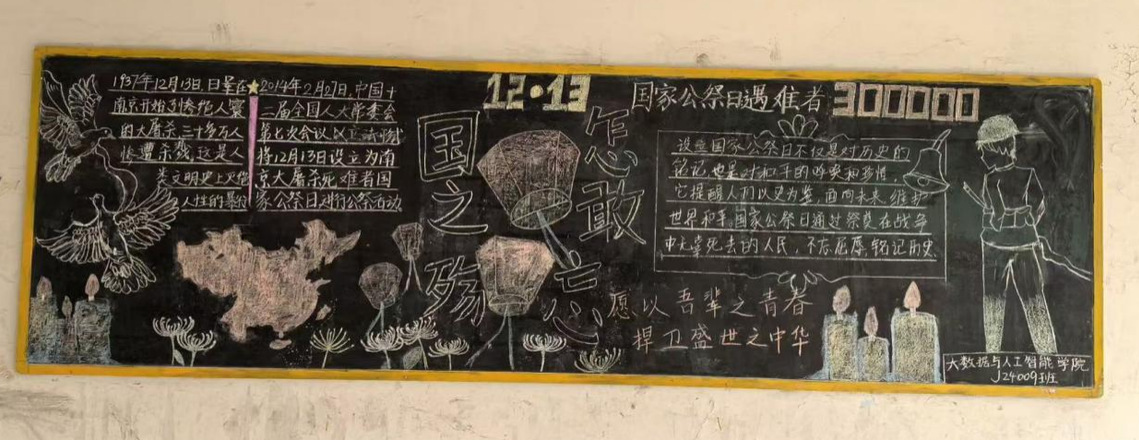 1937年12月13日,日军在
南京开始了惨绝人寰
的大屠杀三十多万人
惨遭杀戮,这是人
类文明史上灭绝
人性的暴行
2014年2月27日,中国十
二届全国人大常委会
第七次会议以立法形式
将12月13日设立为南
京大屠杀死难者国
家公祭日进行公祭活动
12·13
国之殇
怎敢忘
国家公祭日遇难者300000
设立国家公祭日不仅是对历史的
铭记,也是对和平的呼唤和珍惜。
它提醒人们以史为鉴,面向未来,维护
世界和平,国家公祭日通过祭奠在战争
中无辜死去的人民,不忘屈辱,铭记历史。
愿以吾辈之青春
捍卫盛世之中华
大数据与人工智能学院
J24009班